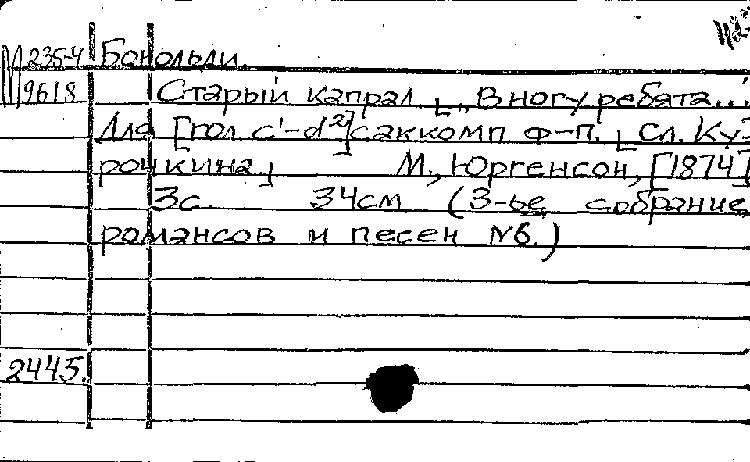 М 235-4 Бонольди.
9618 Старый капрал. [„В ногу ребята...
Для [гол. c'-d²] с аккомп ф-п. [Сл. Ку-
рочкина] М., Юргенсон, [1874]
3с. 34см (3-ье собрание
романсов и песен №6.)
2445.